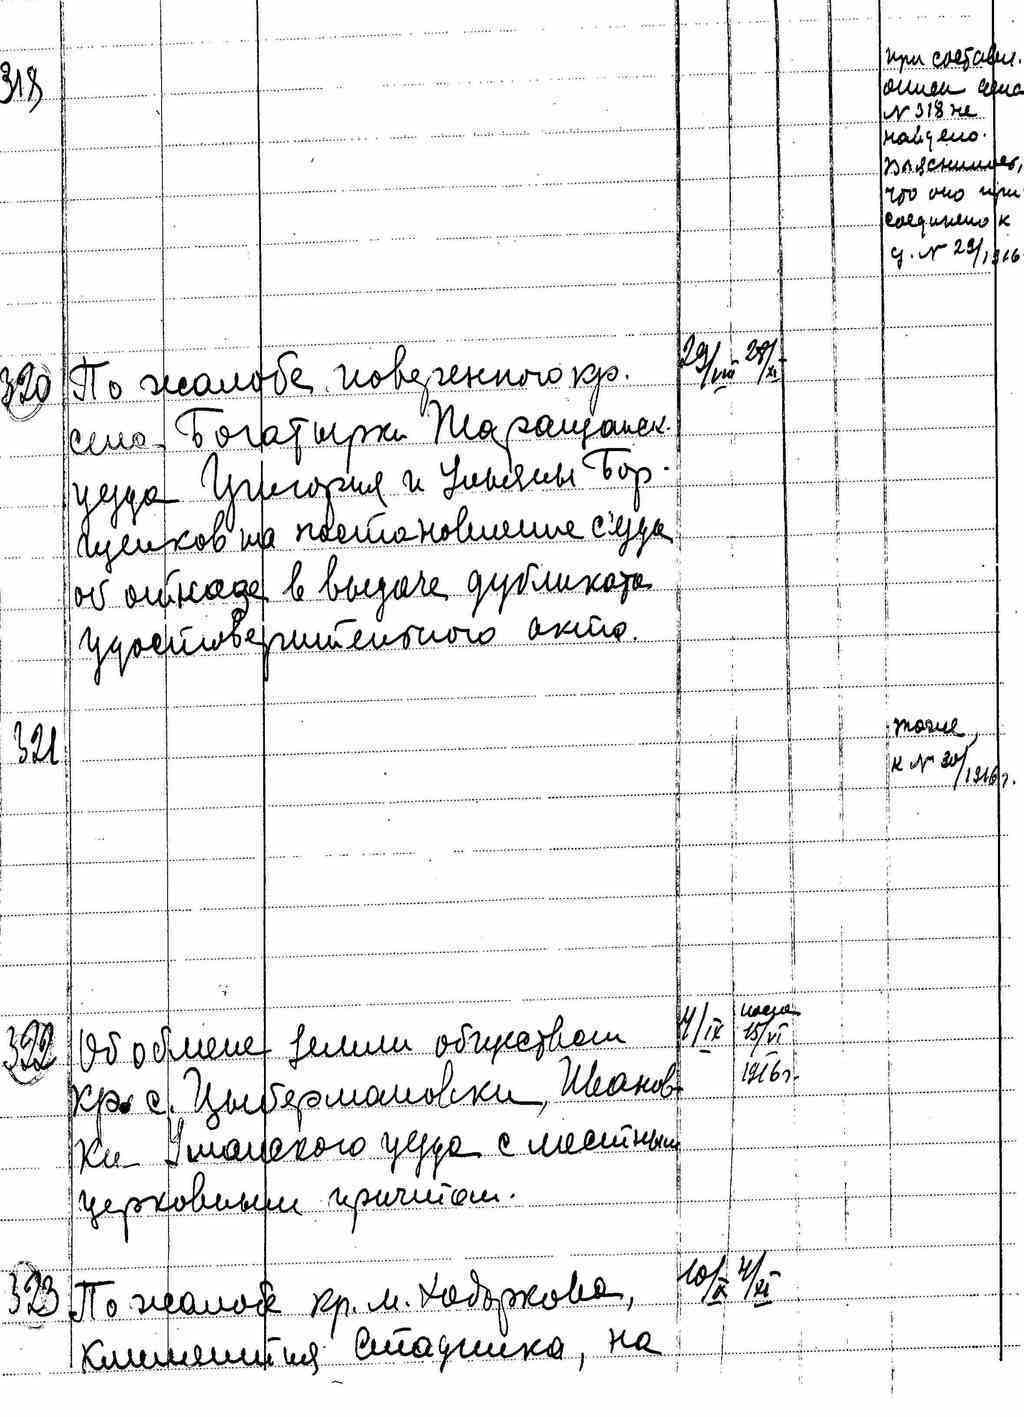 318
при составл.
описи дела
№ 318 не
найдено.
Выяснилось,
что оно при
соединено к
д. № 29/1916
320 По жалобе поверенного кр. 29/VIII 28/XI
села Богатырки Таращанск.
уезда Григория и Ульяны Бор-
щенков на постановление суда
об отказе в выдаче дубликата
удостоверительного акта.
321
также
к № 30/1916 г.
322 Об обмене земли обществом 4/IX 15/VI
кр. с. Цыбермановки, Иванов- 1916 г.
ки Уманского уезда с местным
церковным причтом.
323 По жалобе кр. м. Ходоркова, 10/X 4/XI
Климентия Стадника, на